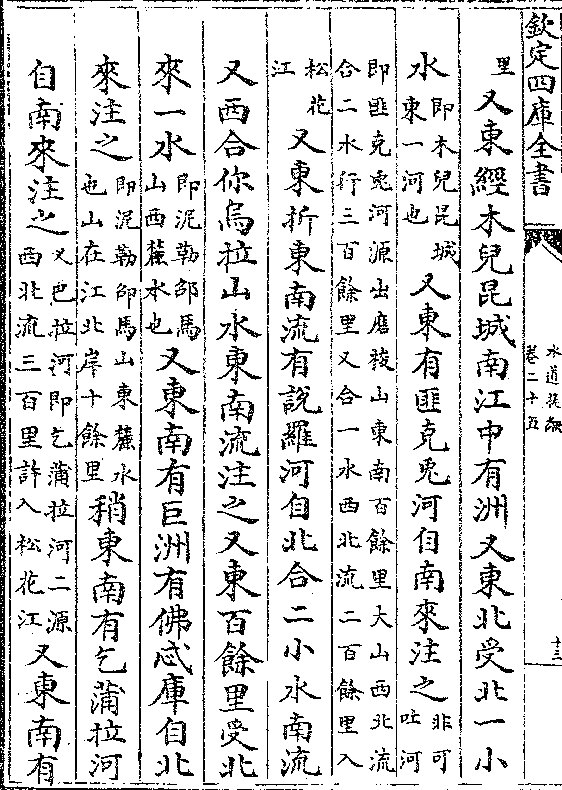 欽定四庫全書
水道提綱
卷二十五
十三
里又東經木兒昆城南江中有洲又東北受北一小
水即木兒昆城東一河也又東有匪克兎河自南來注之非可吐河
即匪克兎河源出磨稜山東南百餘里大山西北流合二水行三百餘里又合一水西北流二百餘里入
松花江又東折東南流有說羅河自北合二小水南流
又西合你烏拉山水東南流注之又東百餘里受北
來一水即泥勒郃馬山西麓水也又東南有巨洲有佛忒庫自北
來注之即泥勒郃馬山東麓水也山在江北岸十餘里稍東南有乞蒲拉河
自南來注之又巴拉河即乞蒲拉河二源西北流三百里許入松花江又東南有